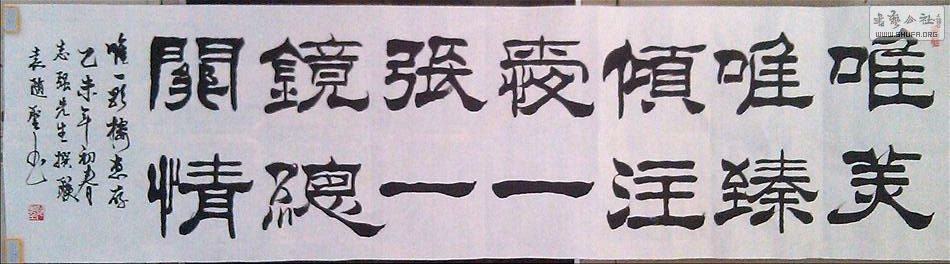 唯美
唯臻
傾注
愛一
張一
鏡總
關情
唯一影樓惠存
乙未年初春
志强先生撰聯
书艺公社
WWW.SHUFA.ORG